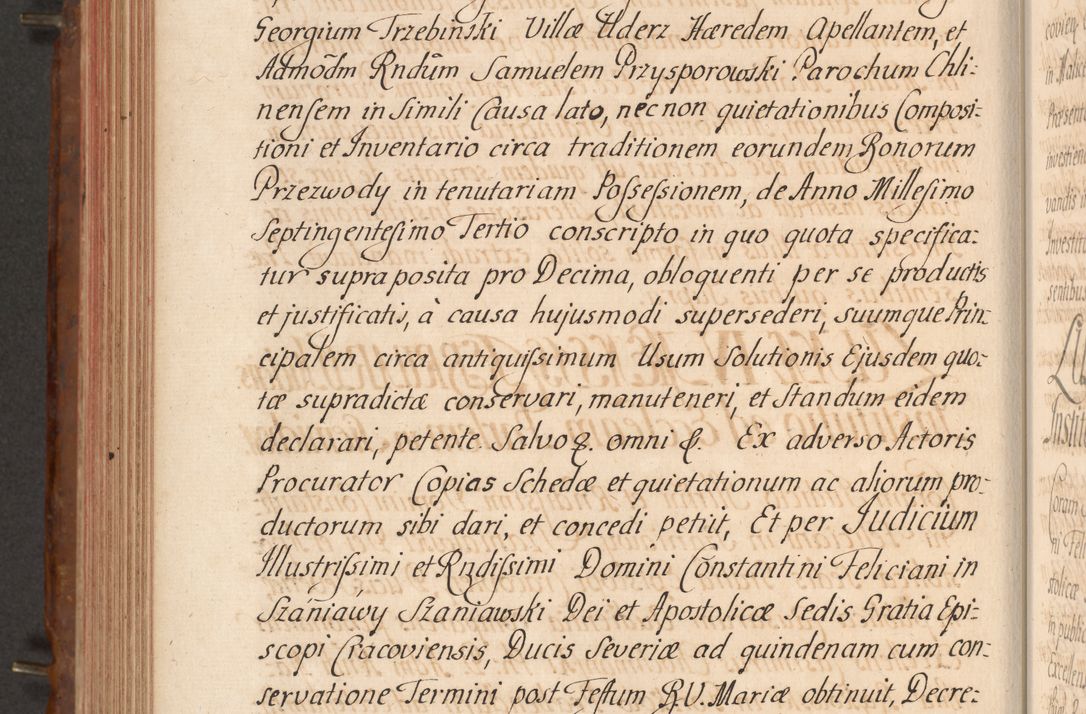 Georgium Trzebinski Villæ Uderz Hæredem Apellantem, et
Admōdm Rndūm Samuelem Przysporowski Parochum Chli-
nensem in simili Causa lato, nec non quietationibus Composi-
tioni et Inventario circa traditionem eorundem Bonorum
Przezwody in tenutariam Possessionem, de Anno Millesimo
Septingentesimo Tertio conscripto in quo quota specifica-
tur supra posita pro Decima, obloquenti per se productis
et justificatis, à causa hujusmodi supersederi, suumque Prin-
cipalem circa antiquissimum Usum Solutionis Ejusdem quo-
tæ supradictæ conservari, manuteneri, et Standum eidem
declarari, petente Salvo omni Ex adverso Actoris
Procurator Copias Schedæ et quietationum ac aliorum pro-
ductorum sibi dari, et concedi petiit, Et per Judicium
Illustrissimi et Rndissimi Domini Constantini Feliciani in
Szaniawy Szaniawski Dei et Apostolicæ Sedis Gratia Epi-
scopi Cracoviensis, Ducis Severiæ ad quindenam cum con-
servatione Termini post Festum B.V. Mariæ obtinuit, Decre-